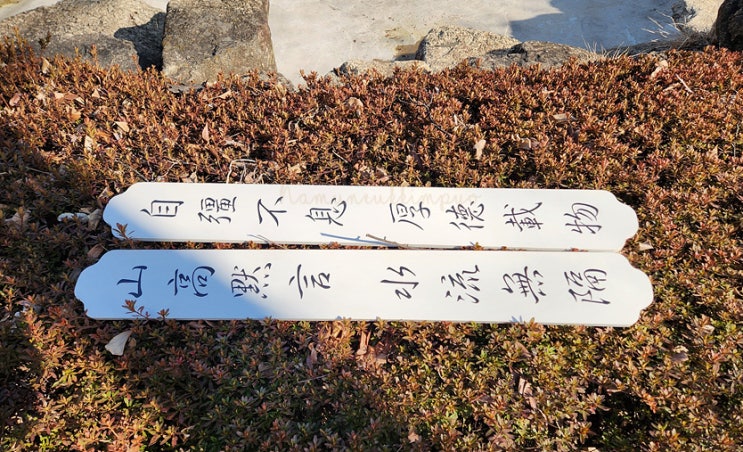 自彊不息 厚德載物
山高默言 水流無隔